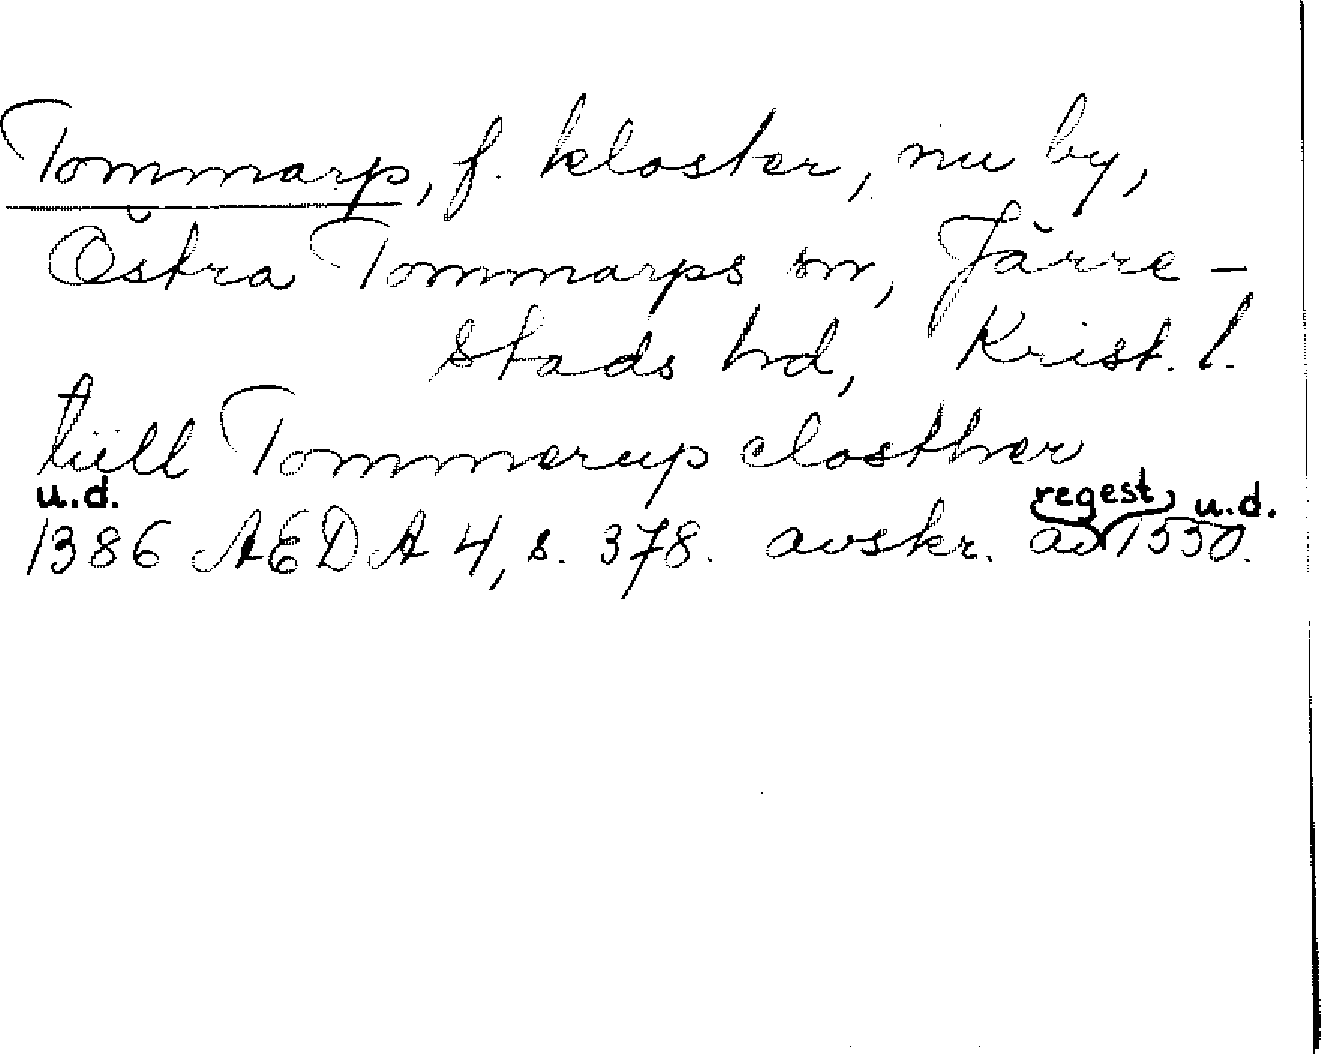 Tommarp, f. kloster, nu by,
Östra Tommarps sn, Järre-
stads hd, Krist. l.
tiill Tommerup closther
u.d. regest, u.d.
1386 AEDA 4, s. 378. avskr. av 1550.